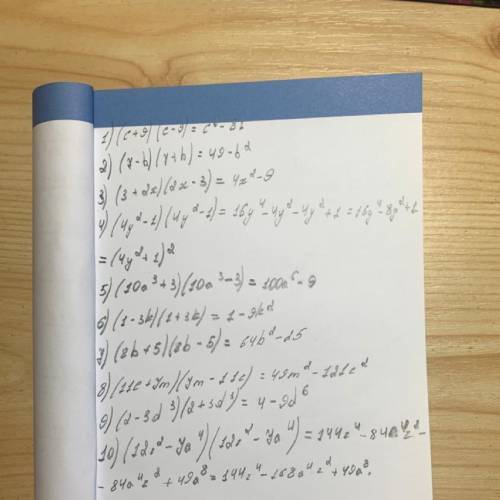 1) (c+9)(c-9)=c²-81
2) (7-b)(7+b)=49-b²
3) (3+2x)(2x-3)=4x²-9
4) (4y²-1)(4y²-1)=16y⁴-4y²-4y²+1=16y⁴-8y²+1
=(4y²+1)²
5) (10a³+3)(10a³-3)=100a⁶-9
6) (1-3k)(1+3k)=1-9k²
7) (8b+5)(8b-5)=64b²-25
8) (11c+7m)(7m-11c)=49m²-121c²
9) (2-3d³)(2+3d³)=4-9d⁶
10) (12z²-7a⁴)(12z²-7a⁴)=144z⁴-84a⁴z²-
-84a⁴z²+49a⁸=144z⁴-168a⁴z²+49a⁸.